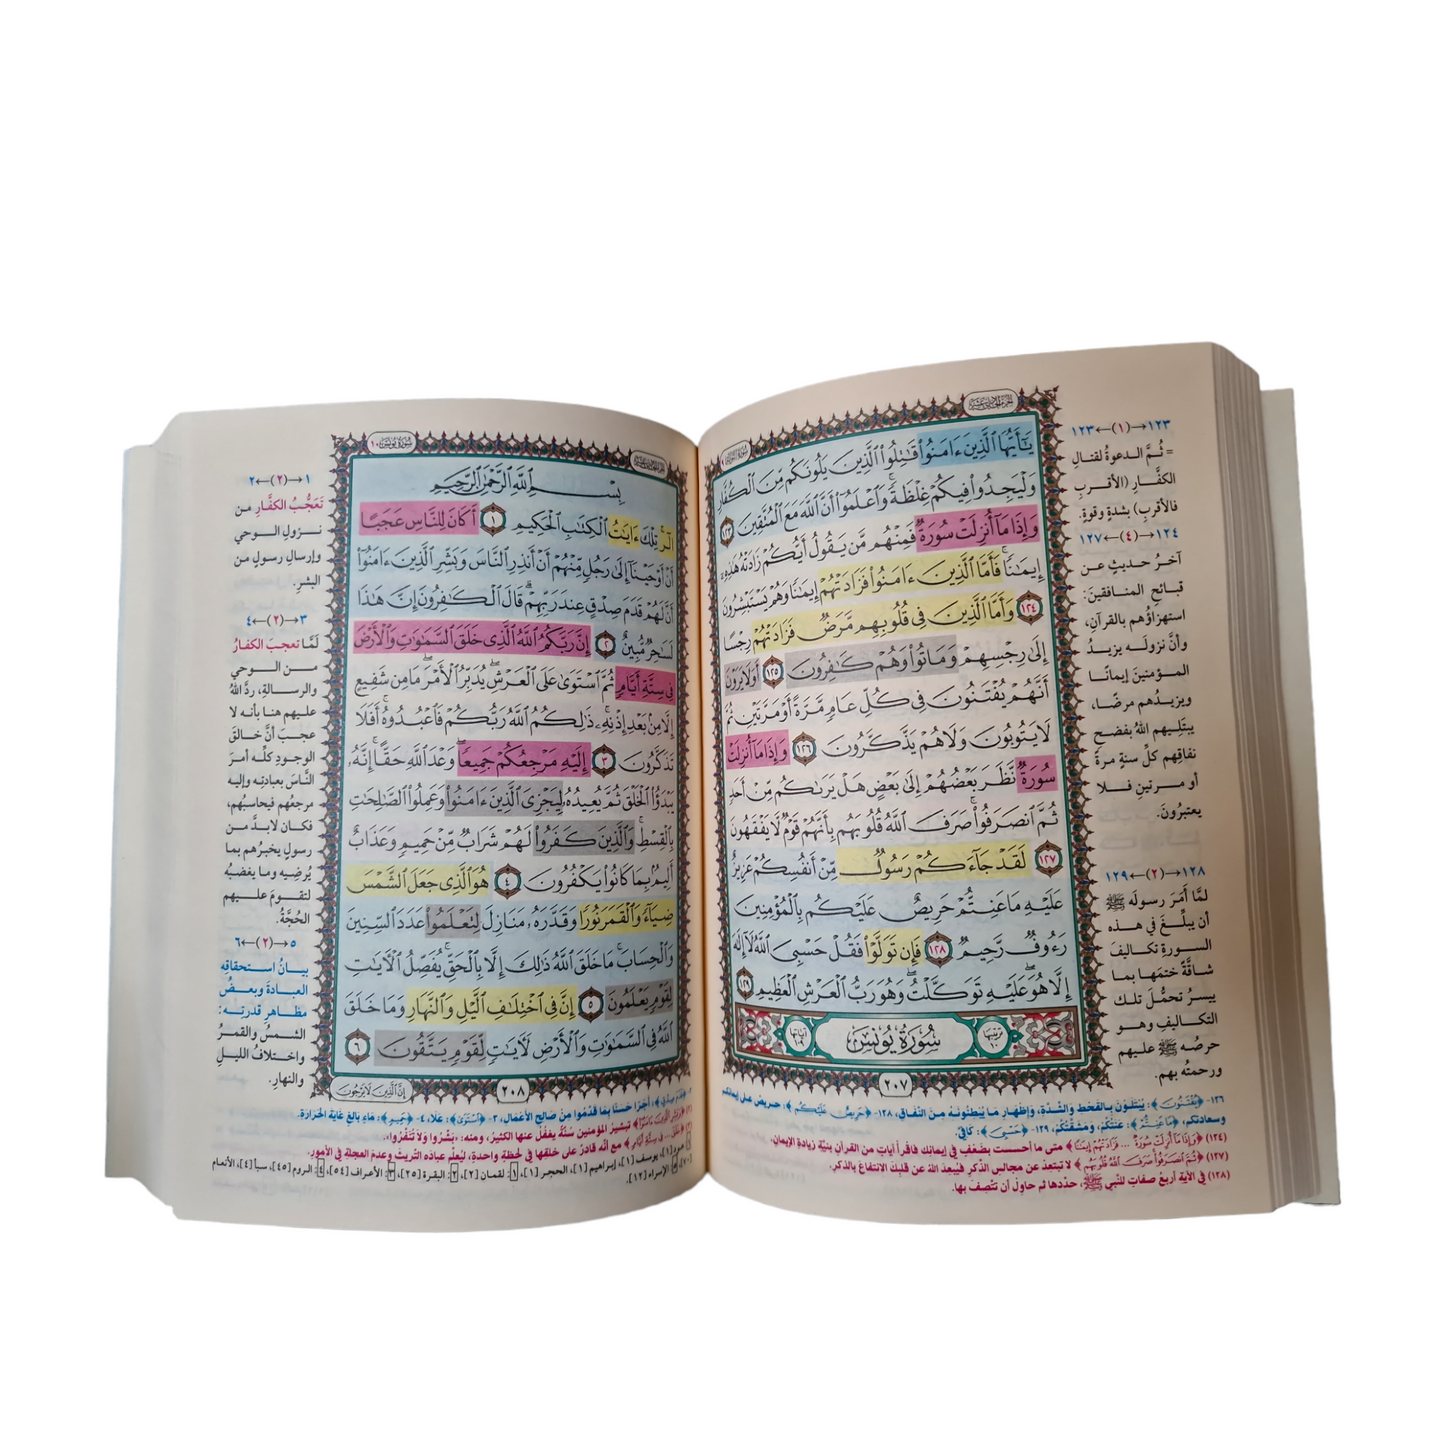 الجزء الحادي عشر
سورة التوبة ٩
يَٰٓأَيُّهَا ٱلَّذِينَ ءَامَنُوا۟ قَٰتِلُوا۟ ٱلَّذِينَ يَلُونَكُم مِّنَ ٱلْكُفَّارِ
وَلْيَجِدُوا۟ فِيكُمْ غِلْظَةً ۚ وَٱعْلَمُوٓا۟ أَنَّ ٱللَّهَ مَعَ ٱلْمُتَّقِينَ ١٢٣
وَإِذَا مَآ أُنزِلَتْ سُورَةٌ فَمِنْهُم مَّن يَقُولُ أَيُّكُمْ زَادَتْهُ هَٰذِهِۦٓ
إِيمَٰنًا ۚ فَأَمَّا ٱلَّذِينَ ءَامَنُوا۟ فَزَادَتْهُمْ إِيمَٰنًا وَهُمْ يَسْتَبْشِرُونَ
١٢٤ وَأَمَّا ٱلَّذِينَ فِى قُلُوبِهِم مَّرَضٌ فَزَادَتْهُمْ رِجْسًا
إِلَىٰ رِجْسِهِمْ وَمَاتُوا۟ وَهُمْ كَٰفِرُونَ ١٢٥ أَوَلَا يَرَوْنَ
أَنَّهُمْ يُفْتَنُونَ فِى كُلِّ عَامٍ مَّرَّةً أَوْ مَرَّتَيْنِ ثُمَّ
لَا يَتُوبُونَ وَلَا هُمْ يَذَّكَّرُونَ ١٢٦ وَإِذَا مَآ أُنزِلَتْ
سُورَةٌ نَّظَرَ بَعْضُهُمْ إِلَىٰ بَعْضٍ هَلْ يَرَىٰكُم مِّنْ أَحَدٍ
ثُمَّ ٱنصَرَفُوا۟ ۚ صَرَفَ ٱللَّهُ قُلُوبَهُم بِأَنَّهُمْ قَوْمٌ لَّا يَفْقَهُونَ
١٢٧ لَقَدْ جَآءَكُمْ رَسُولٌ مِّنْ أَنفُسِكُمْ عَزِيزٌ
عَلَيْهِ مَا عَنِتُّمْ حَرِيصٌ عَلَيْكُم بِٱلْمُؤْمِنِينَ
رَءُوفٌ رَّحِيمٌ ١٢٨ فَإِن تَوَلَّوْا۟ فَقُلْ حَسْبِىَ ٱللَّهُ لَآ إِلَٰهَ
إِلَّا هُوَ ۖ عَلَيْهِ تَوَكَّلْتُ ۖ وَهُوَ رَبُّ ٱلْعَرْشِ ٱلْعَظِيمِ ١٢٩
ترتيبها ١٠ سُورَةُ يُونُسَ آياتها ١٠٩
٢٠٧
١٢٣←(١)→١٢٣
= ثُمَّ الدعوةُ لقتالِ
الكفَّارِ (الأقربِ
فالأقربِ) بشدةٍ وقوةٍ.
١٢٤←(٤)→١٢٧
آخرُ حديثٍ عن
قبائحِ المنافقينَ:
استهزاؤُهم بالقرآنِ،
وأنَّ نزولَه يزيدُ
المؤمنينَ إيمانًا
ويزيدُهم مرضًا،
يبتَلِيهم اللهُ بفضحِ
نفاقِهم كلَّ سنةٍ مرةً
أو مرتينِ فلا
يعتبرُونَ.
١٢٨←(٢)→١٢٩
لمَّا أَمَرَ رسولَه ﷺ
أن يبلِّغَ في هذه
السورةِ تكاليفَ
شاقَّةً ختمَها بما
ييسرُ تحمُّلَ تلك
التكاليفِ وهو
حرصُه ﷺ عليهم
ورحمتُه بهم.
١٢٦- ﴿يُفْتَنُونَ﴾: يُبْتَلَوْنَ بِالقَحْطِ وَالشِّدَّةِ، وَإِظْهَارِ مَا يُبْطِنُونَهُ مِنَ النِّفَاقِ، ١٢٨- ﴿حَرِيصٌ عَلَيْكُم﴾: حريص على إيمانكم
وسعادتكم، ﴿مَا عَنِتُّمْ﴾: عَنَتُكُمْ، وَمَشَقَّتُكُمْ، ١٢٩- ﴿حَسْبِيَ﴾: كافِيَّ.
(١٢٤) ﴿وَإِذَا مَا أُنزِلَتْ سُورَةٌ ... فَزَادَتْهُمْ إِيمَانًا﴾ متى ما أحسست بضعف في إيمانك فاقرأ آيات من القرآن بنيَّة زيادة الإيمان.
(١٢٧) ﴿ثُمَّ انصَرَفُوا صَرَفَ اللَّهُ قُلُوبَهُم﴾ لا تبتعد عن مجالس الذكر فيُبعدَ اللهُ عن قلبكَ الانتفاعَ بالذكر.
(١٢٨) في الآية أربعُ صفاتٍ للنَّبي ﷺ، حدِّدها ثم حاوِل أن تتَّصِفَ بها.
الجزء الحادي عشر
سورة يونس ١٠
بِسْمِ ٱللَّهِ ٱلرَّحْمَٰنِ ٱلرَّحِيمِ
الٓر ۚ تِلْكَ ءَايَٰتُ ٱلْكِتَٰبِ ٱلْحَكِيمِ ١ أَكَانَ لِلنَّاسِ عَجَبًا
أَنْ أَوْحَيْنَآ إِلَىٰ رَجُلٍ مِّنْهُمْ أَنْ أَنذِرِ ٱلنَّاسَ وَبَشِّرِ ٱلَّذِينَ ءَامَنُوٓا۟
أَنَّ لَهُمْ قَدَمَ صِدْقٍ عِندَ رَبِّهِمْ ۗ قَالَ ٱلْكَٰفِرُونَ إِنَّ هَٰذَا
لَسَٰحِرٌ مُّبِينٌ ٢ إِنَّ رَبَّكُمُ ٱللَّهُ ٱلَّذِى خَلَقَ ٱلسَّمَٰوَٰتِ وَٱلْأَرْضَ
فِى سِتَّةِ أَيَّامٍ ثُمَّ ٱسْتَوَىٰ عَلَى ٱلْعَرْشِ ۖ يُدَبِّرُ ٱلْأَمْرَ ۖ مَا مِن شَفِيعٍ
إِلَّا مِنۢ بَعْدِ إِذْنِهِۦ ۚ ذَٰلِكُمُ ٱللَّهُ رَبُّكُمْ فَٱعْبُدُوهُ ۚ أَفَلَا
تَذَكَّرُونَ ٣ إِلَيْهِ مَرْجِعُكُمْ جَمِيعًا ۖ وَعْدَ ٱللَّهِ حَقًّا ۚ إِنَّهُۥ
يَبْدَؤُا۟ ٱلْخَلْقَ ثُمَّ يُعِيدُهُۥ لِيَجْزِىَ ٱلَّذِينَ ءَامَنُوا۟ وَعَمِلُوا۟ ٱلصَّٰلِحَٰتِ
بِٱلْقِسْطِ ۚ وَٱلَّذِينَ كَفَرُوا۟ لَهُمْ شَرَابٌ مِّنْ حَمِيمٍ وَعَذَابٌ
أَلِيمٌۢ بِمَا كَانُوا۟ يَكْفُرُونَ ٤ هُوَ ٱلَّذِى جَعَلَ ٱلشَّمْسَ
ضِيَآءً وَٱلْقَمَرَ نُورًا وَقَدَّرَهُۥ مَنَازِلَ لِتَعْلَمُوا۟ عَدَدَ ٱلسِّنِينَ
وَٱلْحِسَابَ ۚ مَا خَلَقَ ٱللَّهُ ذَٰلِكَ إِلَّا بِٱلْحَقِّ ۚ يُفَصِّلُ ٱلْءَايَٰتِ
لِقَوْمٍ يَعْلَمُونَ ٥ إِنَّ فِى ٱخْتِلَٰفِ ٱلَّيْلِ وَٱلنَّهَارِ وَمَا خَلَقَ
ٱللَّهُ فِى ٱلسَّمَٰوَٰتِ وَٱلْأَرْضِ لَءَايَٰتٍ لِّقَوْمٍ يَتَّقُونَ ٦
٢٠٨
إِنَّ الَّذِينَ لَا يَرْجُونَ
١←(٢)→٢
تَعَجُّبُ الكفَّارِ من
نزولِ الوحي
وإرسالِ رسولٍ من
البشرِ.
٣←(٢)→٤
لَمَّا تعجبَ الكفارُ
من الوحي
والرسالةِ، ردَّ اللهُ
عليهم هنا بأنه لا
عجبَ أنَّ خالقَ
الوجودِ كلِّه أمرَ
النَّاسَ بعبادتِه وإليه
مرجعُهم فيحاسبُهم،
فكان لابدَّ من
رسولٍ يخبرُهم بما
يُرضِيه وما يغضبُه
لتقومَ عليهم
الحُجَّةُ.
٥←(٢)→٦
بيانُ استحقاقِه
العبادةَ وبعضُ
مظاهرِ قدرتِه:
الشمسُ والقمرُ
واختلافُ الليلِ
والنهارِ.
٢- ﴿قَدَمَ صِدْقٍ﴾: أَجْرًا حَسَنًا بِمَا قَدَّمُوا مِنْ صَالِحِ الأَعْمَالِ، ٣- ﴿اسْتَوَى﴾: عَلَا، ٤- ﴿حَمِيمٍ﴾: مَاءٍ بالِغٍ غَايَةَ الحَرَارَةِ.
(٢) ﴿وَبَشِّرِ الَّذِينَ آمَنُوا﴾ تبشير المؤمنين سُنَّةٌ يغفُل عنها الكثير، ومنه: «بَشِّرُوا وَلَا تُنَفِّرُوا».
(٣) ﴿خَلَقَ ... فِي سِتَّةِ أَيَّامٍ﴾ مع أنَّه قادرٌ على خلقها في لحظةٍ واحدةٍ، ليُعلِّمَ عباده التَّريث وعدم العجلة في الأمور.
هود [١]، يوسف [١]، إبراهيم [١]، الحجر [١]، ١: لقمان [٢]، ٢: البقرة [٢٥]، ٣: الأعراف [٥٤]، ٤: الروم [٤٥]، سبأ [٤]، الأنعام
الإسراء [١٢].